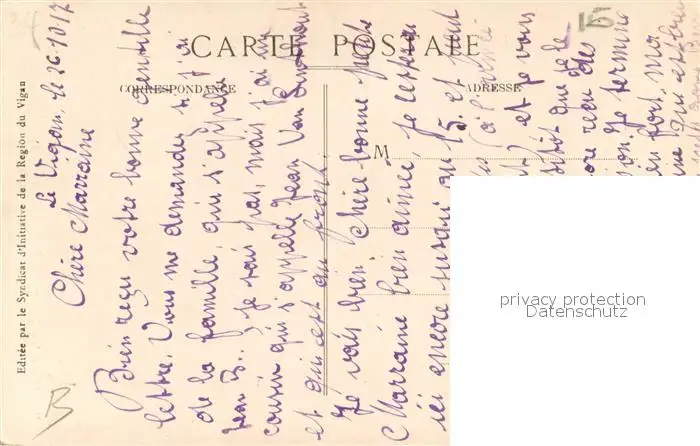 CARTE POSTALE
CORRESPONDANCE
ADRESSE
M
Editée par le Syndicat d'Initiative de la Région du Vigan
Le Vigan, le 26.10.17
Chère Marraine
Bien reçu votre bonne gentille
lettre. Vous me demandez si j'ai
de la famille, qui s'appelle
Jean B.., je sais pas, mais j'ai un
cousin qui s'appelle Jean Van
et qui est au front.
Je vais bien. Chère bonne petite
Marraine bien aimée, je resterai
ici encore jusqu'au 15 et peut
et je vous
tôt que je le
ore reçu des
ion. Je termine
en fort, ma
ine qui
B
privacy protection
Datenschutz